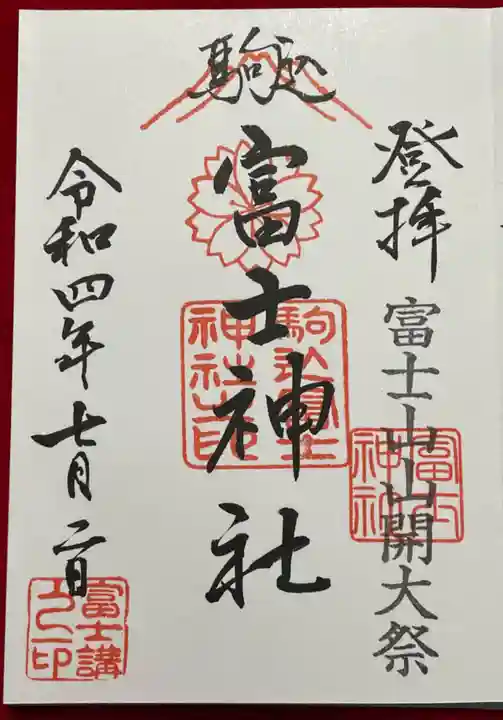 登拝
富士山山開大祭
富士
神社
駒込
富士神社
駒込富士
神社之印
令和四年七月二日
富士講